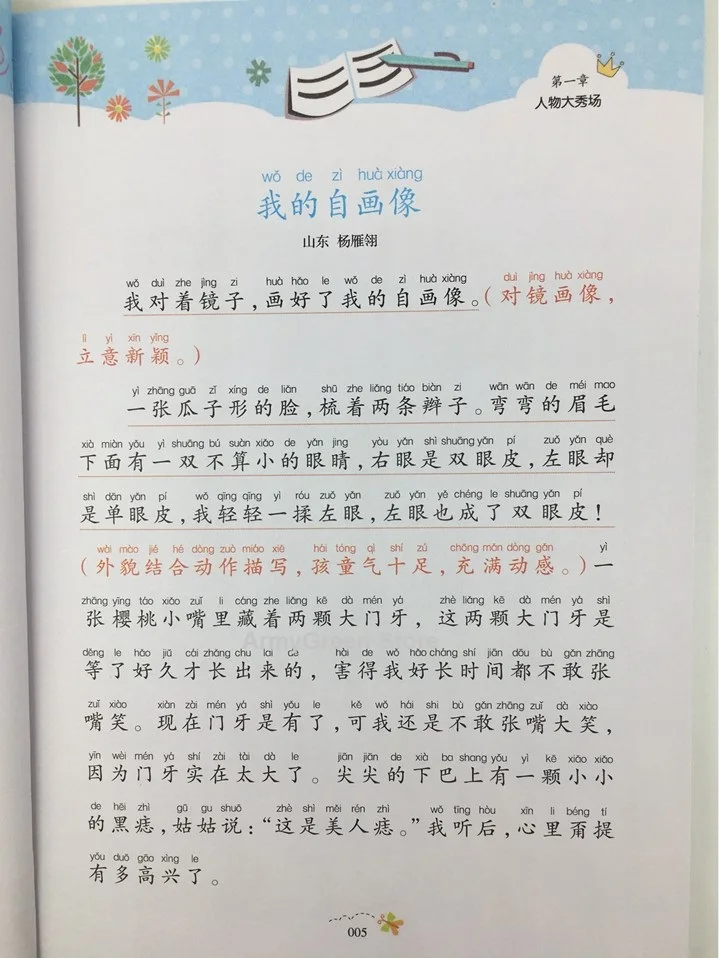 第一章
人物大秀场
wǒ de zì huà xiàng
我的自画像
山东 杨雁翎
wǒ duì zhe jìng zi huà hǎo le wǒ de zì huà xiàng duì jìng huà xiàng
我对着镜子，画好了我的自画像。（对镜画像，
lì yì xīn yǐng
立意新颖。）
yì zhāng guā zǐ xíng de liǎn shū zhe liǎng tiáo biàn zi wān wān de méi mao
一张瓜子形的脸，梳着两条辫子。弯弯的眉毛
xià miàn yǒu yì shuāng bú suàn xiǎo de yǎn jing yòu yǎn shì shuāng yǎn pí zuǒ yǎn què
下面有一双不算小的眼睛，右眼是双眼皮，左眼却
shì dān yǎn pí wǒ qīng qīng yì róu zuǒ yǎn zuǒ yǎn yě chéng le shuāng yǎn pí
是单眼皮，我轻轻一揉左眼，左眼也成了双眼皮！
wài mào jié hé dòng zuò miáo xiě hái tóng qì shí zú chōng mǎn dòng gǎn yì
（外貌结合动作描写，孩童气十足，充满动感。）一
zhāng yīng táo xiǎo zuǐ li cáng zhe liǎng kē dà mén yá zhè liǎng kē dà mén yá shì
张樱桃小嘴里藏着两颗大门牙，这两颗大门牙是
děng le hǎo jiǔ cái zhǎng chu lai de hài de wǒ hǎo cháng shí jiān dōu bù gǎn zhāng
等了好久才长出来的，害得我好长时间都不敢张
zuǐ xiào xiàn zài mén yá shì yǒu le kě wǒ hái shi bù gǎn zhāng zuǐ dà xiào
嘴笑。现在门牙是有了，可我还是不敢张嘴大笑，
yīn wèi mén yá shí zài tài dà le jiān jiān de xià ba shang yǒu yì kē xiǎo xiǎo
因为门牙实在太大了。尖尖的下巴上有一颗小小
de hēi zhì gū gu shuō zhè shì měi rén zhì wǒ tīng hòu xīn li béng tí
的黑痣，姑姑说：“这是美人痣。”我听后，心里甭提
yǒu duō gāo xìng le
有多高兴了。
ArmyGreen Store
005